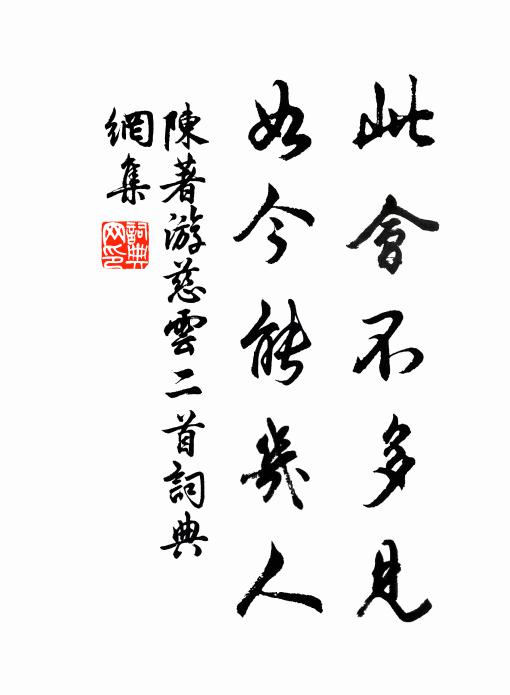 此會不多見
如今能幾人
陳著游慈雲二首詞典
網集
詞典
网印